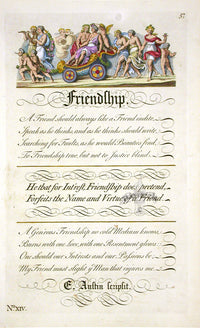 57
Friendship.
A Friend should always like a Friend indite,
Speak as he thinks, and as he thinks should write,
Searching for Faults, as he would Beauties find,
To Friendship true, but not to Justice blind.
He that for Int'rest Friendship does pretend,
Forfeits the Name and Virtue of a Friend.
A Gen'rous Friendship no cold Medium knows,
Burns with one love, with one Resentment glows;
One should our Int'rests and our Passions be,
My Friend must slight ye Man that injures me.
E. Austin scripsit.
No. XIV.